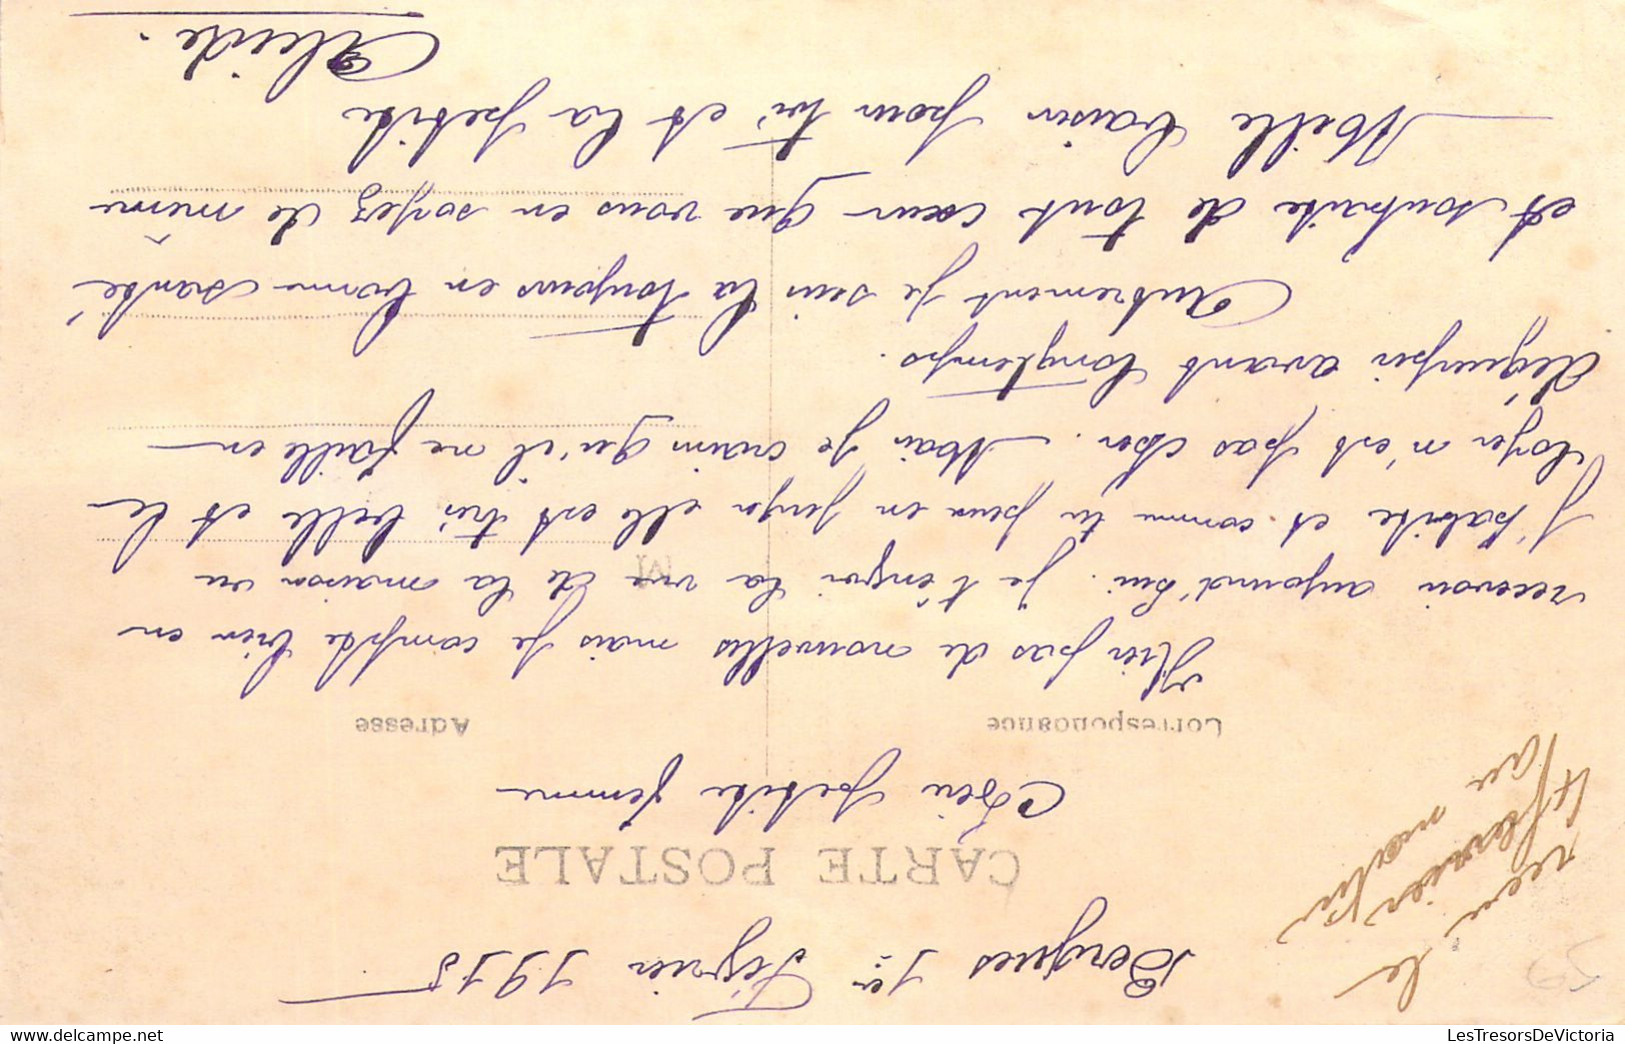 Bergues 1er Février 1915
CARTE POSTALE
Chère petite femme
Correspondance
Adresse
Hier pas de nouvelles mais je compte bien en
recevoir aujourd'hui. Je t'envoi la vue de la maison ou
M
j'habite et comme tu peux en juger elle est très belle et le
loyer n'est pas cher. Mais je crain qu'il ne faille en
déguerpir avant longtemps.
Autrement je suis la toujours en bonne santé
et souhaite de tout cœur que vous en soyez de même
Mille baiser pour toi et la petite
Alcide.
reçu le
4 février
au matin
59
LesTresorsDeVictoria